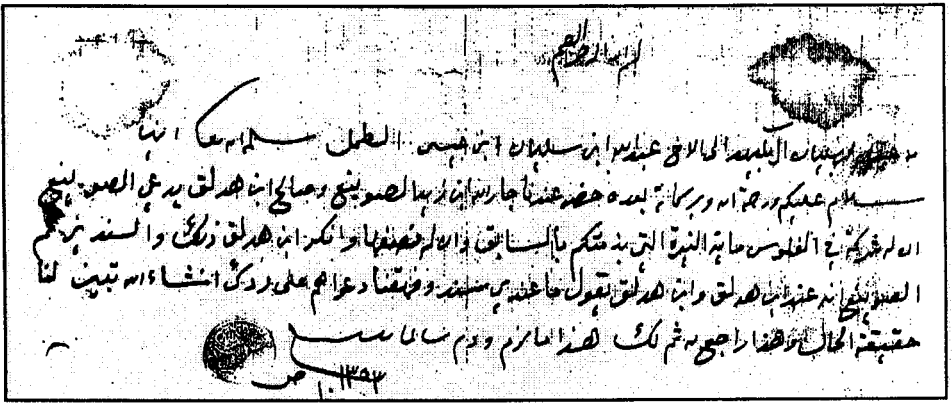 بسم الله الرحمن الرحيم
من سليمان آل بليهد إلى الاخ عبدالله ابن سليمان ابن عيسى سلمه الله تعا
سلام عليكم ورحمة الله وبركاته بعده حضر عندنا جارالله ابن زيد الصويينع وصالح ابن هدلق يدعي الصويينع
ان له شركة في الفلوس ماية النيرة التي بذمتكم بالسابق وان له نصفها وانكر ابن هدلق ذلك والسند يزعم
الصويينع انه عند ابن هدلق وابن هدلق يقول ما عندي سند دعواهم على ردك انشاء الله تبين لنا
حقيقة الحال وهذا راجع به ثم لك هذا ما لزم ودم سالما
١٣٩٣